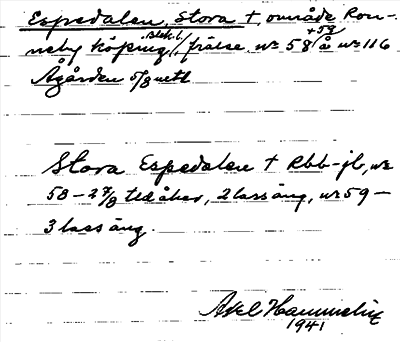 Espedalen, Stora + område Ron-
neby köping, Blek. l. frälse nr 58 + 59 å nr 116
Ågården 5/8 mtl
Stora Espedalen + Rbb-jb, nr
58 – 2 7/8 tld åker, 2 lass äng, nr 59 –
3 lass äng.
Axel Hammelin
1941